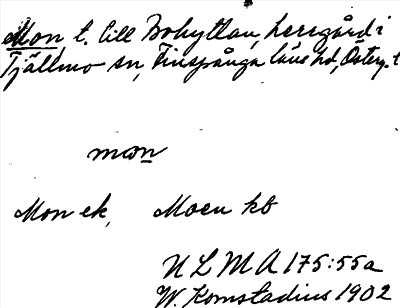 Mon, t. till Bohyttan, herrgård i
Tjällmo sn, Finspånga läns hd, Österg. l
mon
Mon ek, Moen kb
ULMA 175:55a
W. Komstadius 1902